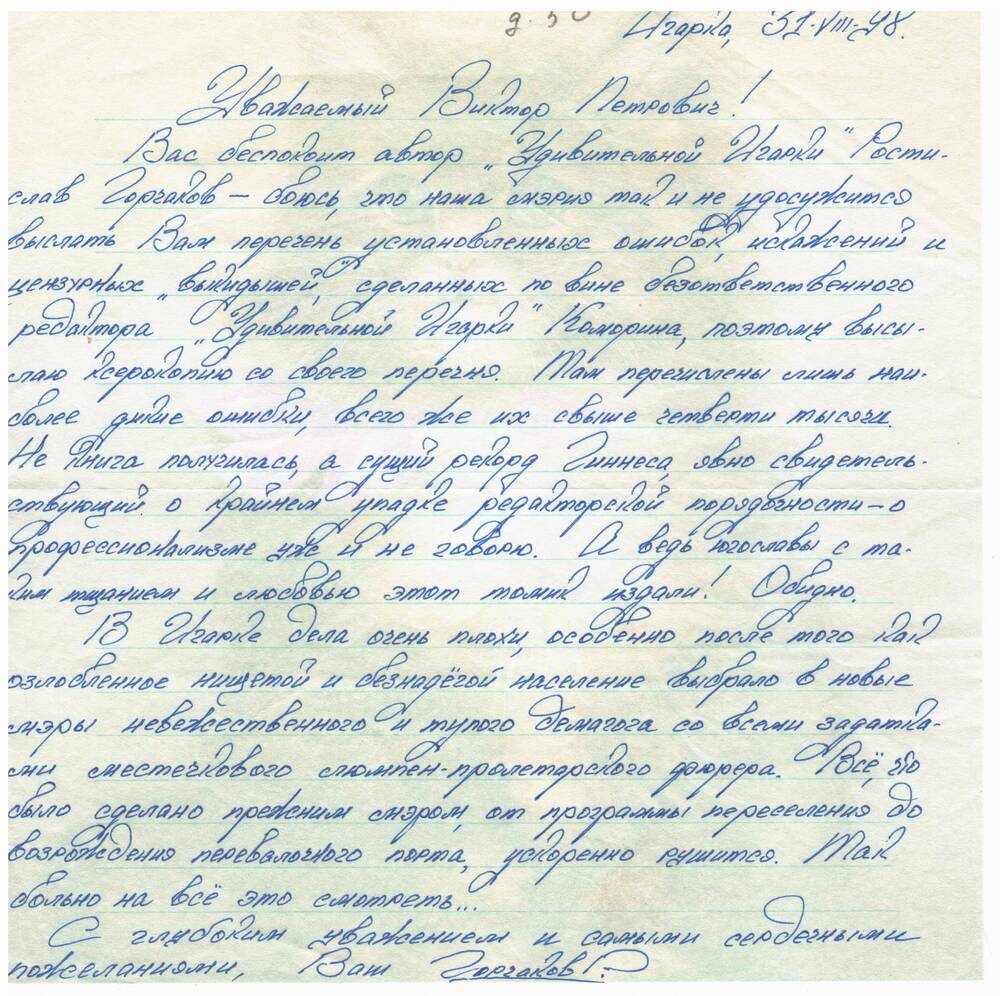 Игарка, 31-VIII-98.
Уважаемый Виктор Петрович!
Вас беспокоит автор „Удивительной Игарки" Рости-
слав Горчаков — боюсь, что наша мэрия так и не удосужится
выслать Вам перечень установленных ошибок, искажений и
цензурных „выкидышей", сделанных по вине безответственного
редактора „Удивительной Игарки" Комарина, поэтому высы-
лаю ксерокопию со своего перечня. Там перечислены лишь наи-
более дикие ошибки, всего же их свыше четверти тысячи.
Не книга получилась, а сущий рекорд Гиннеса, явно свидетель-
ствующий о крайнем упадке редакторской порядочности — о
профессионализме уж и не говорю. А ведь югославы с та-
ким тщанием и любовью этот томик издали! Обидно.
В Игарке дела очень плохи, особенно после того как
озлобленное нищетой и безнадёгой население выбрало в новые
мэры невежественного и тупого демагога со всеми задатка-
ми местечкового люмпен-пролетарского фюрера. Всё, что
было сделано прежним мэром, от программы переселения до
возрождения перевалочного порта, ускоренно рушится. Так
больно на всё это смотреть...
С глубоким уважением и самыми сердечными
пожеланиями, Ваш Горчаков Р.